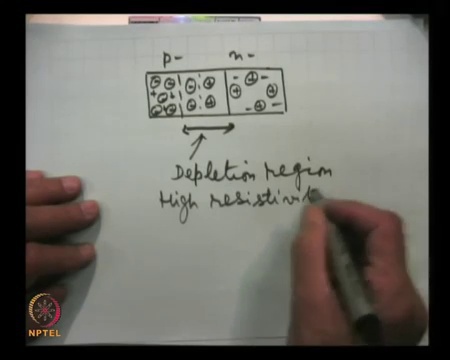 p- n-
Depletion region
High resistivit
NPTEL